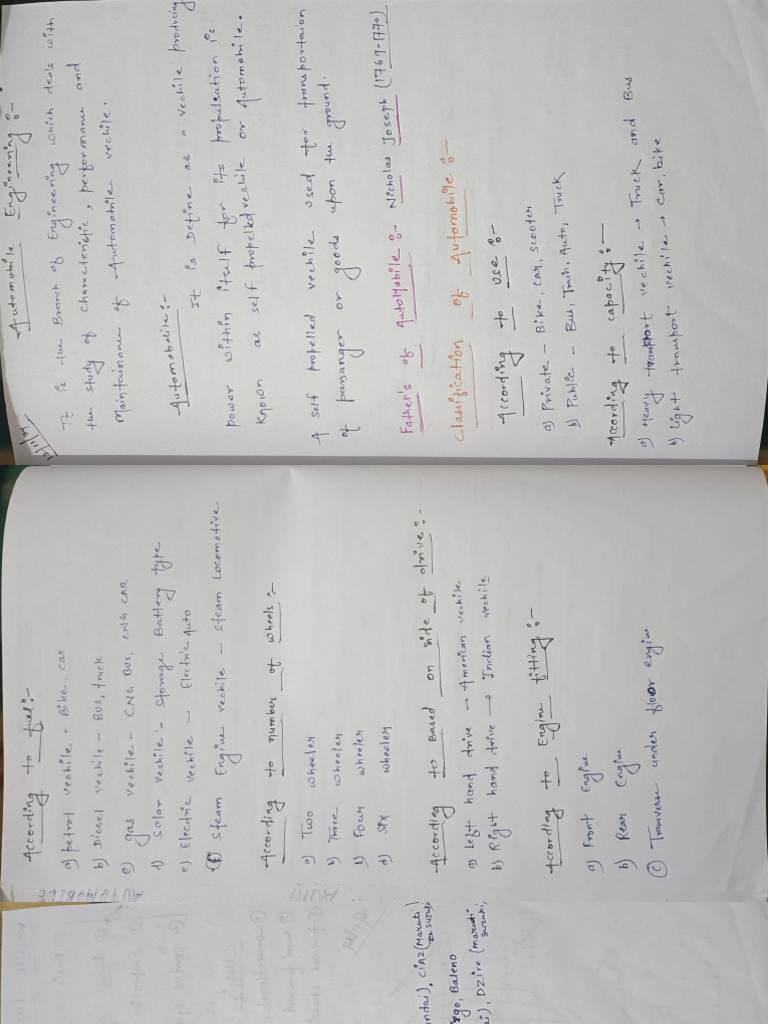 Automobile Engineering :-
It is the Branch of Engineering which deals with
the study of characteristic, performance and
Maintainance of Automobile vechile.
Automobile:-
It is Define as a vechile producing
power within itself for its propulsation is
known as self propelled vechile or Automobile.
A self propelled vechile used for transportaion
of passanger or goods upon the ground.
Father's of AutoMobile :- Nicholas Joseph (1769-1770)
Classification of Automobile :-
According to use :-
a) Private - Bike, car, scooter
b) Public - Bus, Train, Auto, Truck
According to capocity :-
a) Heavy transport vechile → Truck and Bus
b) light transport vechile → car, bike
According to fuel:-
a) petrol vechile - Bike, car
b) Diesel vechile - BUS, truck
c) gas vechile - CNG BUS, CNG CAR
d) solar vechile - storage Battery type
e) Electric vechile - Electric Auto
(f) steam Engine vechile - steam Locomotive
According to number of wheels :-
a) Two wheeler
b) Three wheeler
c) Four wheeler
d) six wheeler
According to Based on side of drive :-
a) left hand drive → American vechile
b) Right hand drive → Indian vechile
According to Engine fitting :-
a) Front Engine
b) Rear Engine
(c) Tranverse under floor engine
ndai), CIAZ (Maruti
suzuki
Baleno
ai), DZire (maruti
suzuki,